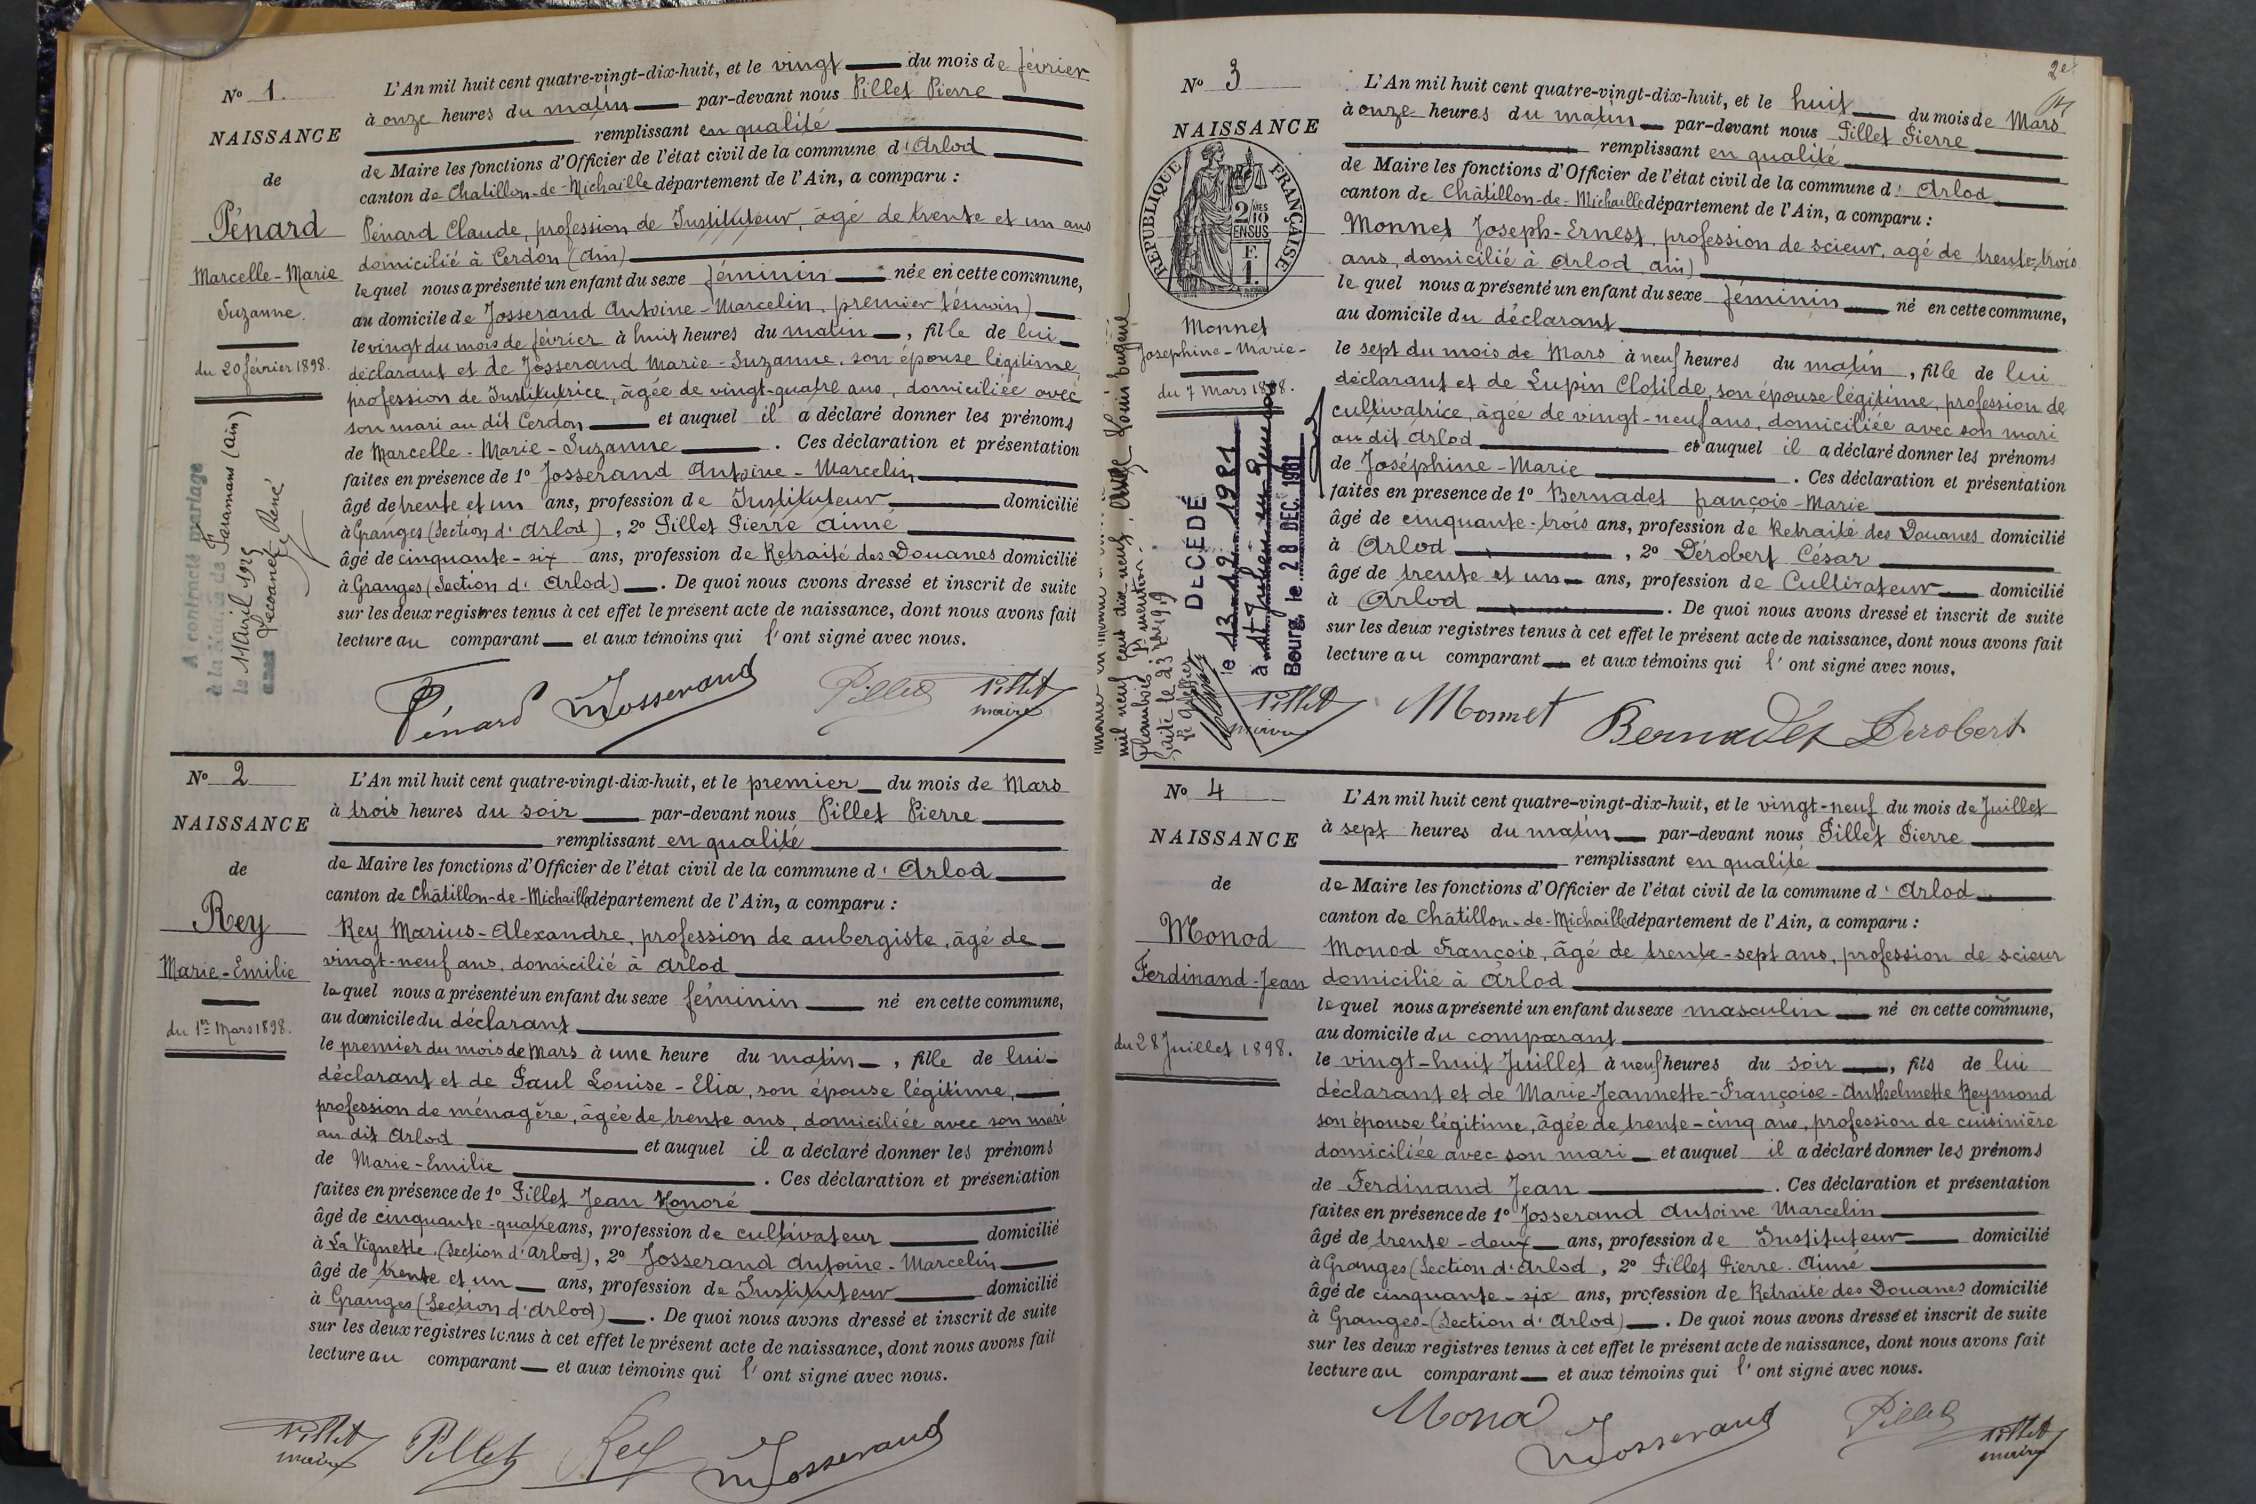 N° 1.
NAISSANCE
de
Pénard
Marcelle-Marie
Suzanne.
du 20 février 1898.
A contracté mariage
à la Mairie de Faramans (Ain)
le 11 Avril 1925
avec
René
L'An mil huit cent quatre-vingt-dix-huit, et le vingt du mois de février
à onze heures du matin par-devant nous Pillet Pierre
remplissant en qualité
de Maire les fonctions d'Officier de l'état civil de la commune d'Arlod
canton de Chatillon-de-Michaille département de l'Ain, a comparu :
Pénard Claude, profession de Instituteur, âgé de trente et un ans
domicilié à Cerdon (Ain)
lequel nous a présenté un enfant du sexe féminin née en cette commune,
au domicile de Josserand Antoine-Marcelin, premier témoin)
le vingt du mois de février à huit heures du matin, fille de lui
déclarant et de Josserand Marie-Suzanne, son épouse légitime,
profession de Institutrice, âgée de vingt-quatre ans, domiciliée avec
son mari au dit Cerdon et auquel il a déclaré donner les prénoms
de Marcelle-Marie-Suzanne. Ces déclaration et présentation
faites en présence de 1° Josserand Antoine-Marcelin
âgé de trente et un ans, profession de Instituteur domicilié
à Granges (Section d'Arlod), 2° Pillet Pierre Aimé
âgé de cinquante-six ans, profession de Retraité des Douanes domicilié
à Granges (Section d'Arlod). De quoi nous avons dressé et inscrit de suite
sur les deux registres tenus à cet effet le présent acte de naissance, dont nous avons fait
lecture au comparant et aux témoins qui l'ont signé avec nous.
Pénard Josserand Pillet Pillet
maire
N° 2
NAISSANCE
de
Rey
Marie-Emilie
du 1er Mars 1898.
L'An mil huit cent quatre-vingt-dix-huit, et le premier du mois de Mars
à trois heures du soir par-devant nous Pillet Pierre
remplissant en qualité
de Maire les fonctions d'Officier de l'état civil de la commune d'Arlod
canton de Châtillon-de-Michaille département de l'Ain, a comparu :
Rey Marius-Alexandre, profession de aubergiste, âgé de
vingt-neuf ans, domicilié à Arlod
lequel nous a présenté un enfant du sexe féminin né en cette commune,
au domicile du déclarant
le premier du mois de Mars à une heure du matin, fille de lui
déclarant et de Paul Louise-Elia, son épouse légitime,
profession de ménagère, âgée de trente ans, domiciliée avec son mari
au dit Arlod et auquel il a déclaré donner les prénoms
de Marie-Emilie. Ces déclaration et présentation
faites en présence de 1° Pillet Jean Honoré
âgé de cinquante-quatre ans, profession de cultivateur domicilié
à La Vignette (Section d'Arlod), 2° Josserand Antoine-Marcelin
âgé de trente et un ans, profession de Instituteur domicilié
à Granges (Section d'Arlod). De quoi nous avons dressé et inscrit de suite
sur les deux registres tenus à cet effet le présent acte de naissance, dont nous avons fait
lecture au comparant et aux témoins qui l'ont signé avec nous.
Pillet Pillet Rey Josserand
maire
2e
N° 3
NAISSANCE
RÉPUBLIQUE FRANÇAISE
2/10 EN SUS
F. 1.
Monnet
Josephine-Marie-
du 7 Mars 1898.
mil neuf cent dix neuf,
mention
Faite le 23 1919
Le Greffier
DECÉDÉ
le 13.12.1981
à St Julien en Genevois
Bourg, le 28 DEC. 1981
L'An mil huit cent quatre-vingt-dix-huit, et le huit du mois de Mars
à onze heures du matin par-devant nous Pillet Pierre
remplissant en qualité
de Maire les fonctions d'Officier de l'état civil de la commune d'Arlod
canton de Châtillon-de-Michaille département de l'Ain, a comparu :
Monnet Joseph-Ernest, profession de scieur, agé de trente-trois
ans, domicilié à Arlod Ain)
lequel nous a présenté un enfant du sexe féminin né en cette commune,
au domicile du déclarant
le sept du mois de Mars à neuf heures du matin, fille de lui
déclarant et de Lupin Clotilde, son épouse légitime, profession de
cultivatrice, âgée de vingt-neuf ans, domiciliée avec son mari
au dit Arlod et auquel il a déclaré donner les prénoms
de Joséphine-Marie. Ces déclaration et présentation
faites en presence de 1° Bernadet françois-Marie
âgé de cinquante-trois ans, profession de Retraité des Douanes domicilié
à Arlod, 2° Dérobert César
âgé de trente et un ans, profession de Cultivateur domicilié
à Arlod. De quoi nous avons dressé et inscrit de suite
sur les deux registres tenus à cet effet le présent acte de naissance, dont nous avons fait
lecture au comparant et aux témoins qui l'ont signé avec nous.
Pillet Monnet Bernadet Derobert
maire
N° 4
NAISSANCE
de
Monod
Ferdinand-Jean
du 28 Juillet 1898.
L'An mil huit cent quatre-vingt-dix-huit, et le vingt-neuf du mois de Juillet
à sept heures du matin par-devant nous Pillet Pierre
remplissant en qualité
de Maire les fonctions d'Officier de l'état civil de la commune d'Arlod
canton de Châtillon-de-Michaille département de l'Ain, a comparu :
Monod François, âgé de trente-sept ans, profession de scieur
domicilié à Arlod
lequel nous a présenté un enfant du sexe masculin né en cette commune,
au domicile du comparant
le vingt-huit Juillet à neuf heures du soir, fils de lui
déclarant et de Marie-Jeannette-Françoise-Anthelmette Reymond
son épouse légitime, âgée de trente-cinq ans, profession de cuisinière
domiciliée avec son mari et auquel il a déclaré donner les prénoms
de Ferdinand Jean. Ces déclaration et présentation
faites en présence de 1° Josserand Antoine Marcelin
âgé de trente-deux ans, profession de Instituteur domicilié
à Granges (Section d'Arlod, 2° Pillet Pierre-Aimé
âgé de cinquante-six ans, profession de Retraité des Douanes domicilié
à Granges-(Section d'Arlod). De quoi nous avons dressé et inscrit de suite
sur les deux registres tenus à cet effet le présent acte de naissance, dont nous avons fait
lecture au comparant et aux témoins qui l'ont signé avec nous.
Monod Josserand Pillet Pillet
maire